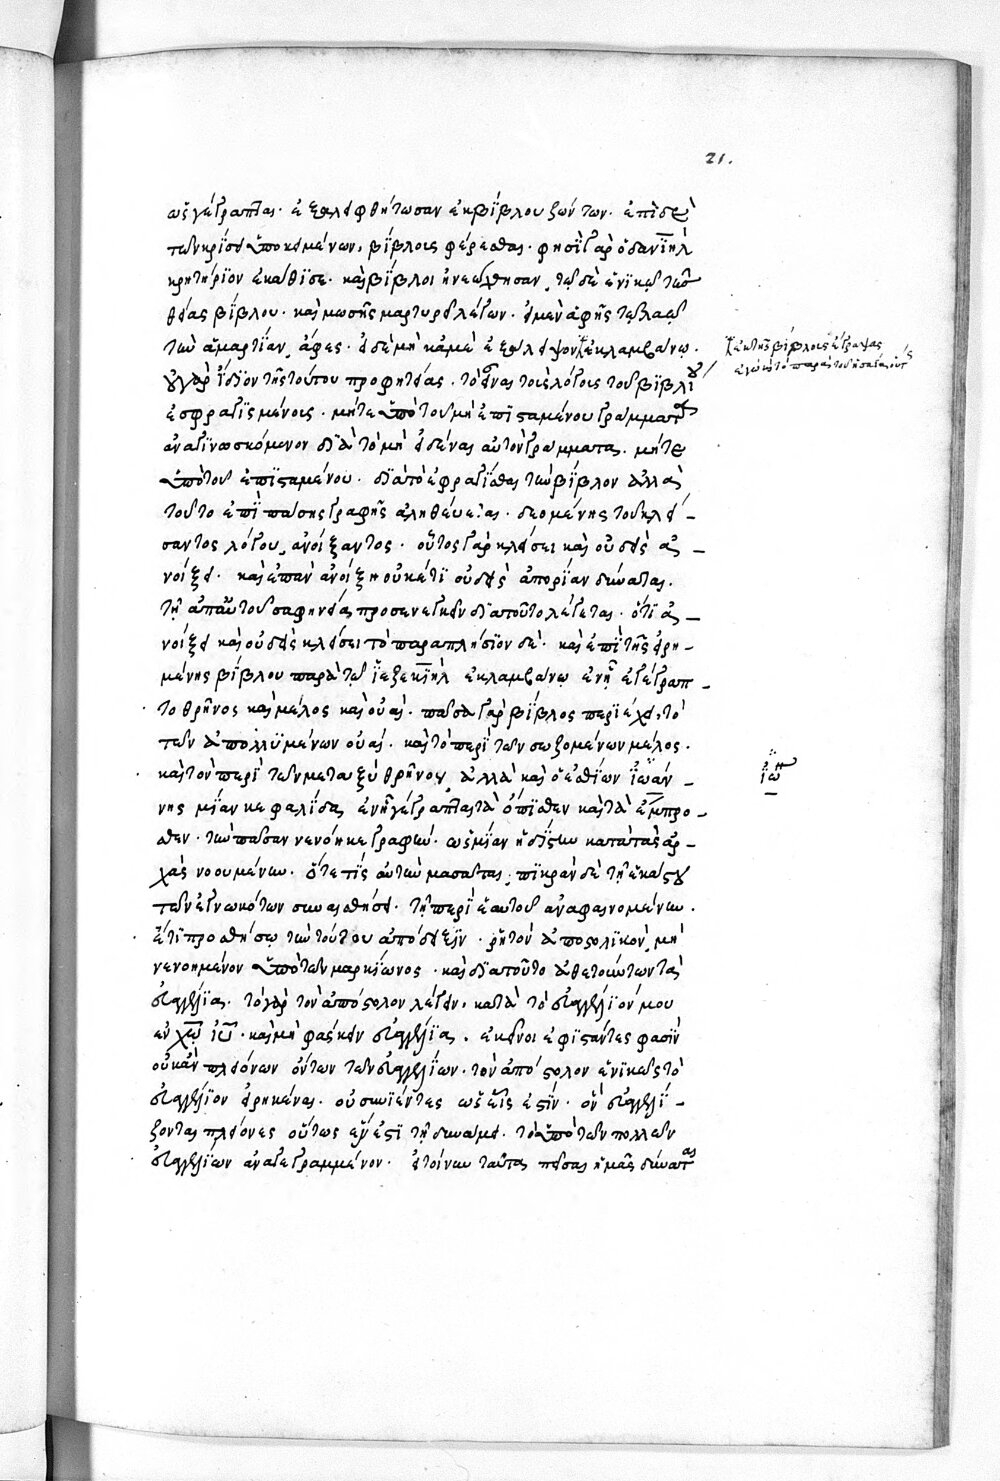 21.
ὡς γέγραπται· ἐξαλειφθήτωσαν ἐκ βίβλου ζώντων· ἐπὶ δὲ
τῶν κρίσει ὑποκειμένων, βίβλοις φέρεσθαι. φησὶ γὰρ ὁ δανιὴλ
κριτήριον ἐκάθισε· καὶ βίβλοι ἠνεώχθησαν, τῷ δὲ ἑνικῷ τῆς
θείας βίβλου· καὶ μωσῆς μαρτυρεῖ λέγων· εἰ μὲν ἀφῇς τῷ λαῷ
τὴν ἁμαρτίαν, ἄφες· εἰ δὲ μὴ κἀμὲ ἐξάλειψον ἐκλαμβάνω.
ἐκ τῆς βίβλου ἧς ἔγραψας
ἐγὼ καὶ τὸ παρὰ τοῦ ἡσαΐας οὕτως
οὐ γὰρ ἴδιον τῆς τούτου προφητείας· τὸ εἶναι τοὺς λόγους τοῦ βιβλίου
ἐσφραγισμένους· μήτε ὑπὸ τοῦ μὴ ἐπισταμένου γράμματα
ἀναγινωσκόμενον διὰ τὸ μὴ εἰδέναι αὐτὸν γράμματα. μήτε
ὑπὸ τοῦ ἐπισταμένου· διὰ τὸ ἐσφραγῖσθαι τὴν βίβλον ἀλλὰ
τοῦτο ἐπὶ πάσης γραφῆς ἀληθεύεται· δεομένης τοῦ κλεί-
σαντος λόγου, ἀνοίξαντος· οὗτος γὰρ κλείσει καὶ οὐδεὶς ἀ-
νοίξει· καὶ ἐπὰν ἀνοίξῃ οὐκέτι οὐδεὶς ἀπορίαν δύναται.
τῇ ἀπ᾽ αὐτοῦ σαφηνείᾳ προσενεγκεῖν διὰ τοῦτο λέγεται· ὅτι ἀ-
νοίξει καὶ οὐδεὶς κλείσει τὸ παραπλήσιον δέ· καὶ ἐπὶ τῆς εἰρη-
μένης βίβλου παρὰ τῷ ἰεζεκιὴλ ἐκλαμβάνω ἐν ᾗ ἐγέγραπ-
το θρῆνος καὶ μέλος καὶ οὐαί· πᾶσα γὰρ βίβλος περιέχει τὸ
τῶν ἀπολλυμένων οὐαί· καὶ τὸ περὶ τῶν σωζομένων μέλος·
καὶ τὸν περὶ τῶν μεταξὺ θρῆνον, ἀλλὰ καὶ ὁ ἐσθίων ἰωάν-
ἰω
νης μίαν κεφαλίδα, ἐν ᾗ γέγραπται τὰ ὄπισθεν καὶ τὰ ἔμπρο-
σθεν· τὴν πᾶσαν νενόηκε γραφήν· ὡς μίαν ἡδίστην κατὰ τὰς ἀρ-
χὰς νοουμένην· ὅτε τις αὐτὴν μασᾶται, πικρὰν δὲ τῇ ἑκάστου
τῶν ἐγνωκότων συναισθήσει· τῇ περὶ ἑαυτοῦ ἀναφαινομένην.
ἔτι προσθήσω τὴν τούτου ἀπόδειξιν· ῥητὸν ἀποστολικὸν, μὴ
νενοημένον ὑπὸ τῶν μαρκίωνος· καὶ διὰ τοῦτο ἀθετούντων τὰ
εὐαγγέλια. τὸ γὰρ τὸν ἀπόστολον λέγειν, κατὰ τὸ εὐαγγέλιόν μου
ἐν χῷ ἰῦ· καὶ μὴ φάσκειν εὐαγγέλια. ἐκεῖνοι ἐφιστάντες φασὶν
οὐκ ἂν πλειόνων ὄντων τῶν εὐαγγελίων· τὸν ἀπόστολον ἑνικῶς τὸ
εὐαγγέλιον εἰρηκέναι· οὐ συνιέντες ὡς εἷς ἐστίν· ὃν εὐαγγελί-
ζονται πλείονες οὕτως ἕν ἐστι τῇ δυνάμει· τὸ ὑπὸ τῶν πολλῶν
εὐαγγέλιον ἀναγεγραμμένον· εἰ τοίνυν ταῦτα πεῖσαι ἡμᾶς δύναται